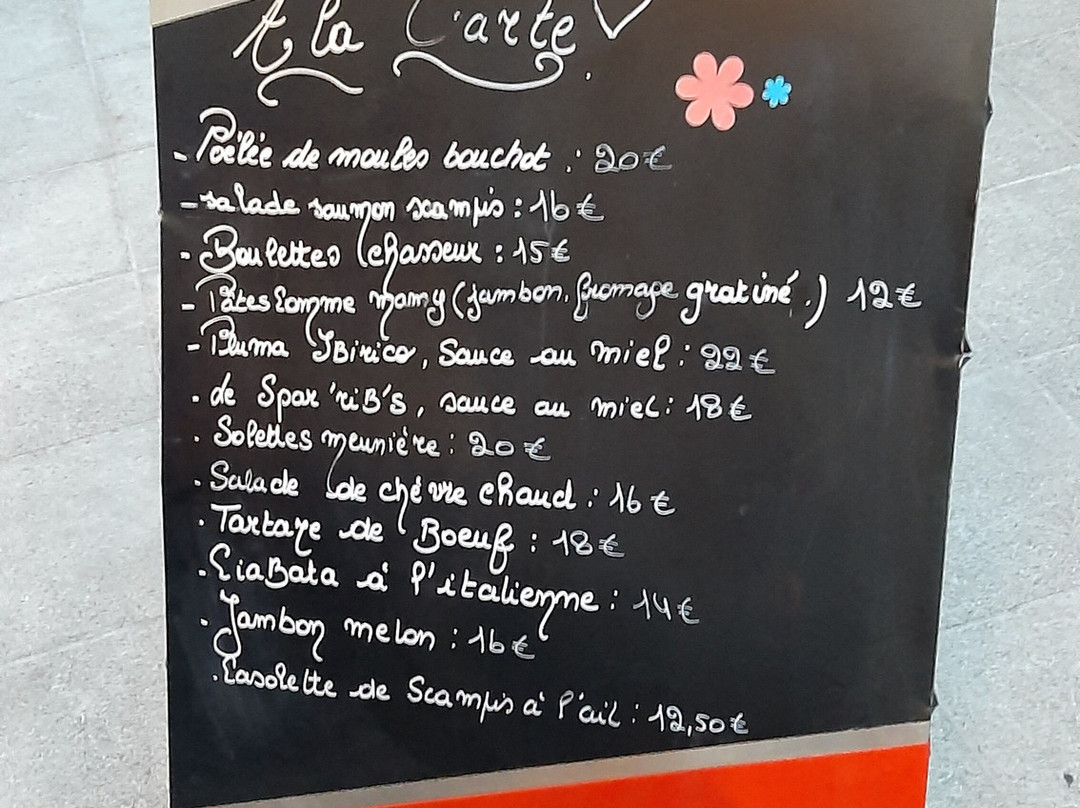 A la Carte
- Poêlée de moules bouchot : 20€
- salade saumon scampis : 16€
- Boulettes chasseur : 15€
- Pâtes comme mamy (jambon, fromage gratiné.) 12€
- Pluma IBirico, Sauce au miel : 22€
. de Spar'riB's, sauce au miel : 18€
. Solettes meunière : 20€
. Salade de chévre chaud : 16€
. Tartare de Boeuf : 18€
. CiaBata à l'italienne : 14€
. Jambon melon : 16€
. Casolette de Scampis à l'ail : 12,50€